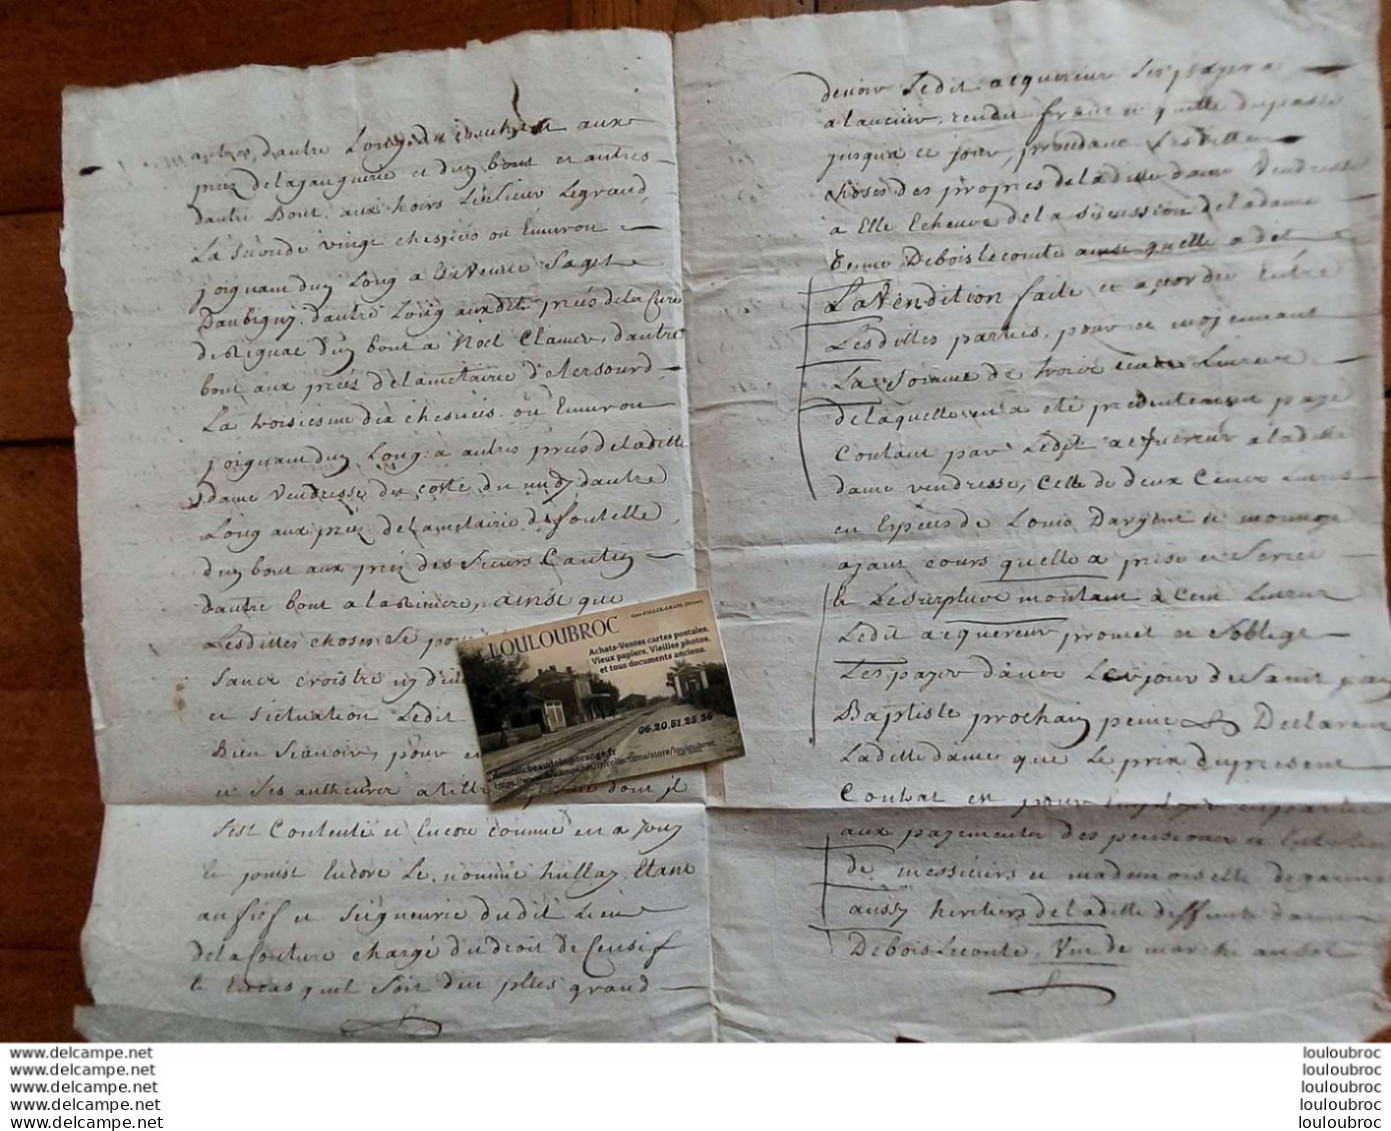 d'autre Long aux
prez de la et d'un bout et autres
d'autre Bout aux hoirs Le Sieur Legrand,
La Seconde vingt chesnées ou Environ
joignant d'un Long a la Veuve Saget
Daubigny, d'autre Long aux dits préés de la Cure
de d'un bout a Noel Clamer, d'autre
bout aux préés de la metairie
La troisiesme dix chesnées ou Environ
joignant d'un Long a autres préés de la ditte
dame Venderesse du costé du midy d'autre
Long aux préz de la metairie de foutelle,
d'un bout aux préz des Sieurs
d'autre bout a la Riviere, ainsi que
Lesdittes choses Se
Sans croistre ny
et Scituation Ledit
Bien Scavoir, pour en
et Ses autheurs a dont jl
S'est Contenté et Encore comme en a jouy
et jouist Encore Le nommé hullay, Etant
au fief et Seigneurie dudit Lieu
de la Couture chargé du droit de Censif
et En cas quil Soit dû plus grand
devoir Ledit acquereur Les payera
a Lavenir, rendu franc et quitte du passé
jusqua ce jour, Lesdittes
choses des propres de la ditte dame Venderesse
a Elle Echeuë de la Succession de la dame
Debois Lecomte ainsi quelle a dit
La Vendition faite et accordée Entre
Lesdittes parties, pour et moyennant
La Somme de trois cent Livres
de laquelle en a été presentement payé
Contant par Ledit acquereur a la ditte
dame venderesse, Celle de deux Cent Livres
en Especes de Louis Dargent et monnoye
ayant cours quelle a prise et Serrée
et Le Surplus montant a Cent Livres
Ledit acquereur promet et Soblige
Les payer dans Le jour de Saint jean
Baptiste prochain peine & Declarant
La ditte dame que Le prix du present
Contrat est pour Employer
aux payements des pensions
de messieurs et mademoiselle
aussy heritiers de la ditte deffunte dame
Debois Lecomte, Vin de marché au Sol
LOULOUBROC
Achats-Ventes cartes postales.
Vieux papiers. Vieilles photos.
et tous documents anciens.
06.20.51.25.36
www.delcampe.net
www.delcampe.net
www.delcampe.net
www.delcampe.net
www.delcampe.net
louloubroc
louloubroc
louloubroc
louloubroc
louloubroc